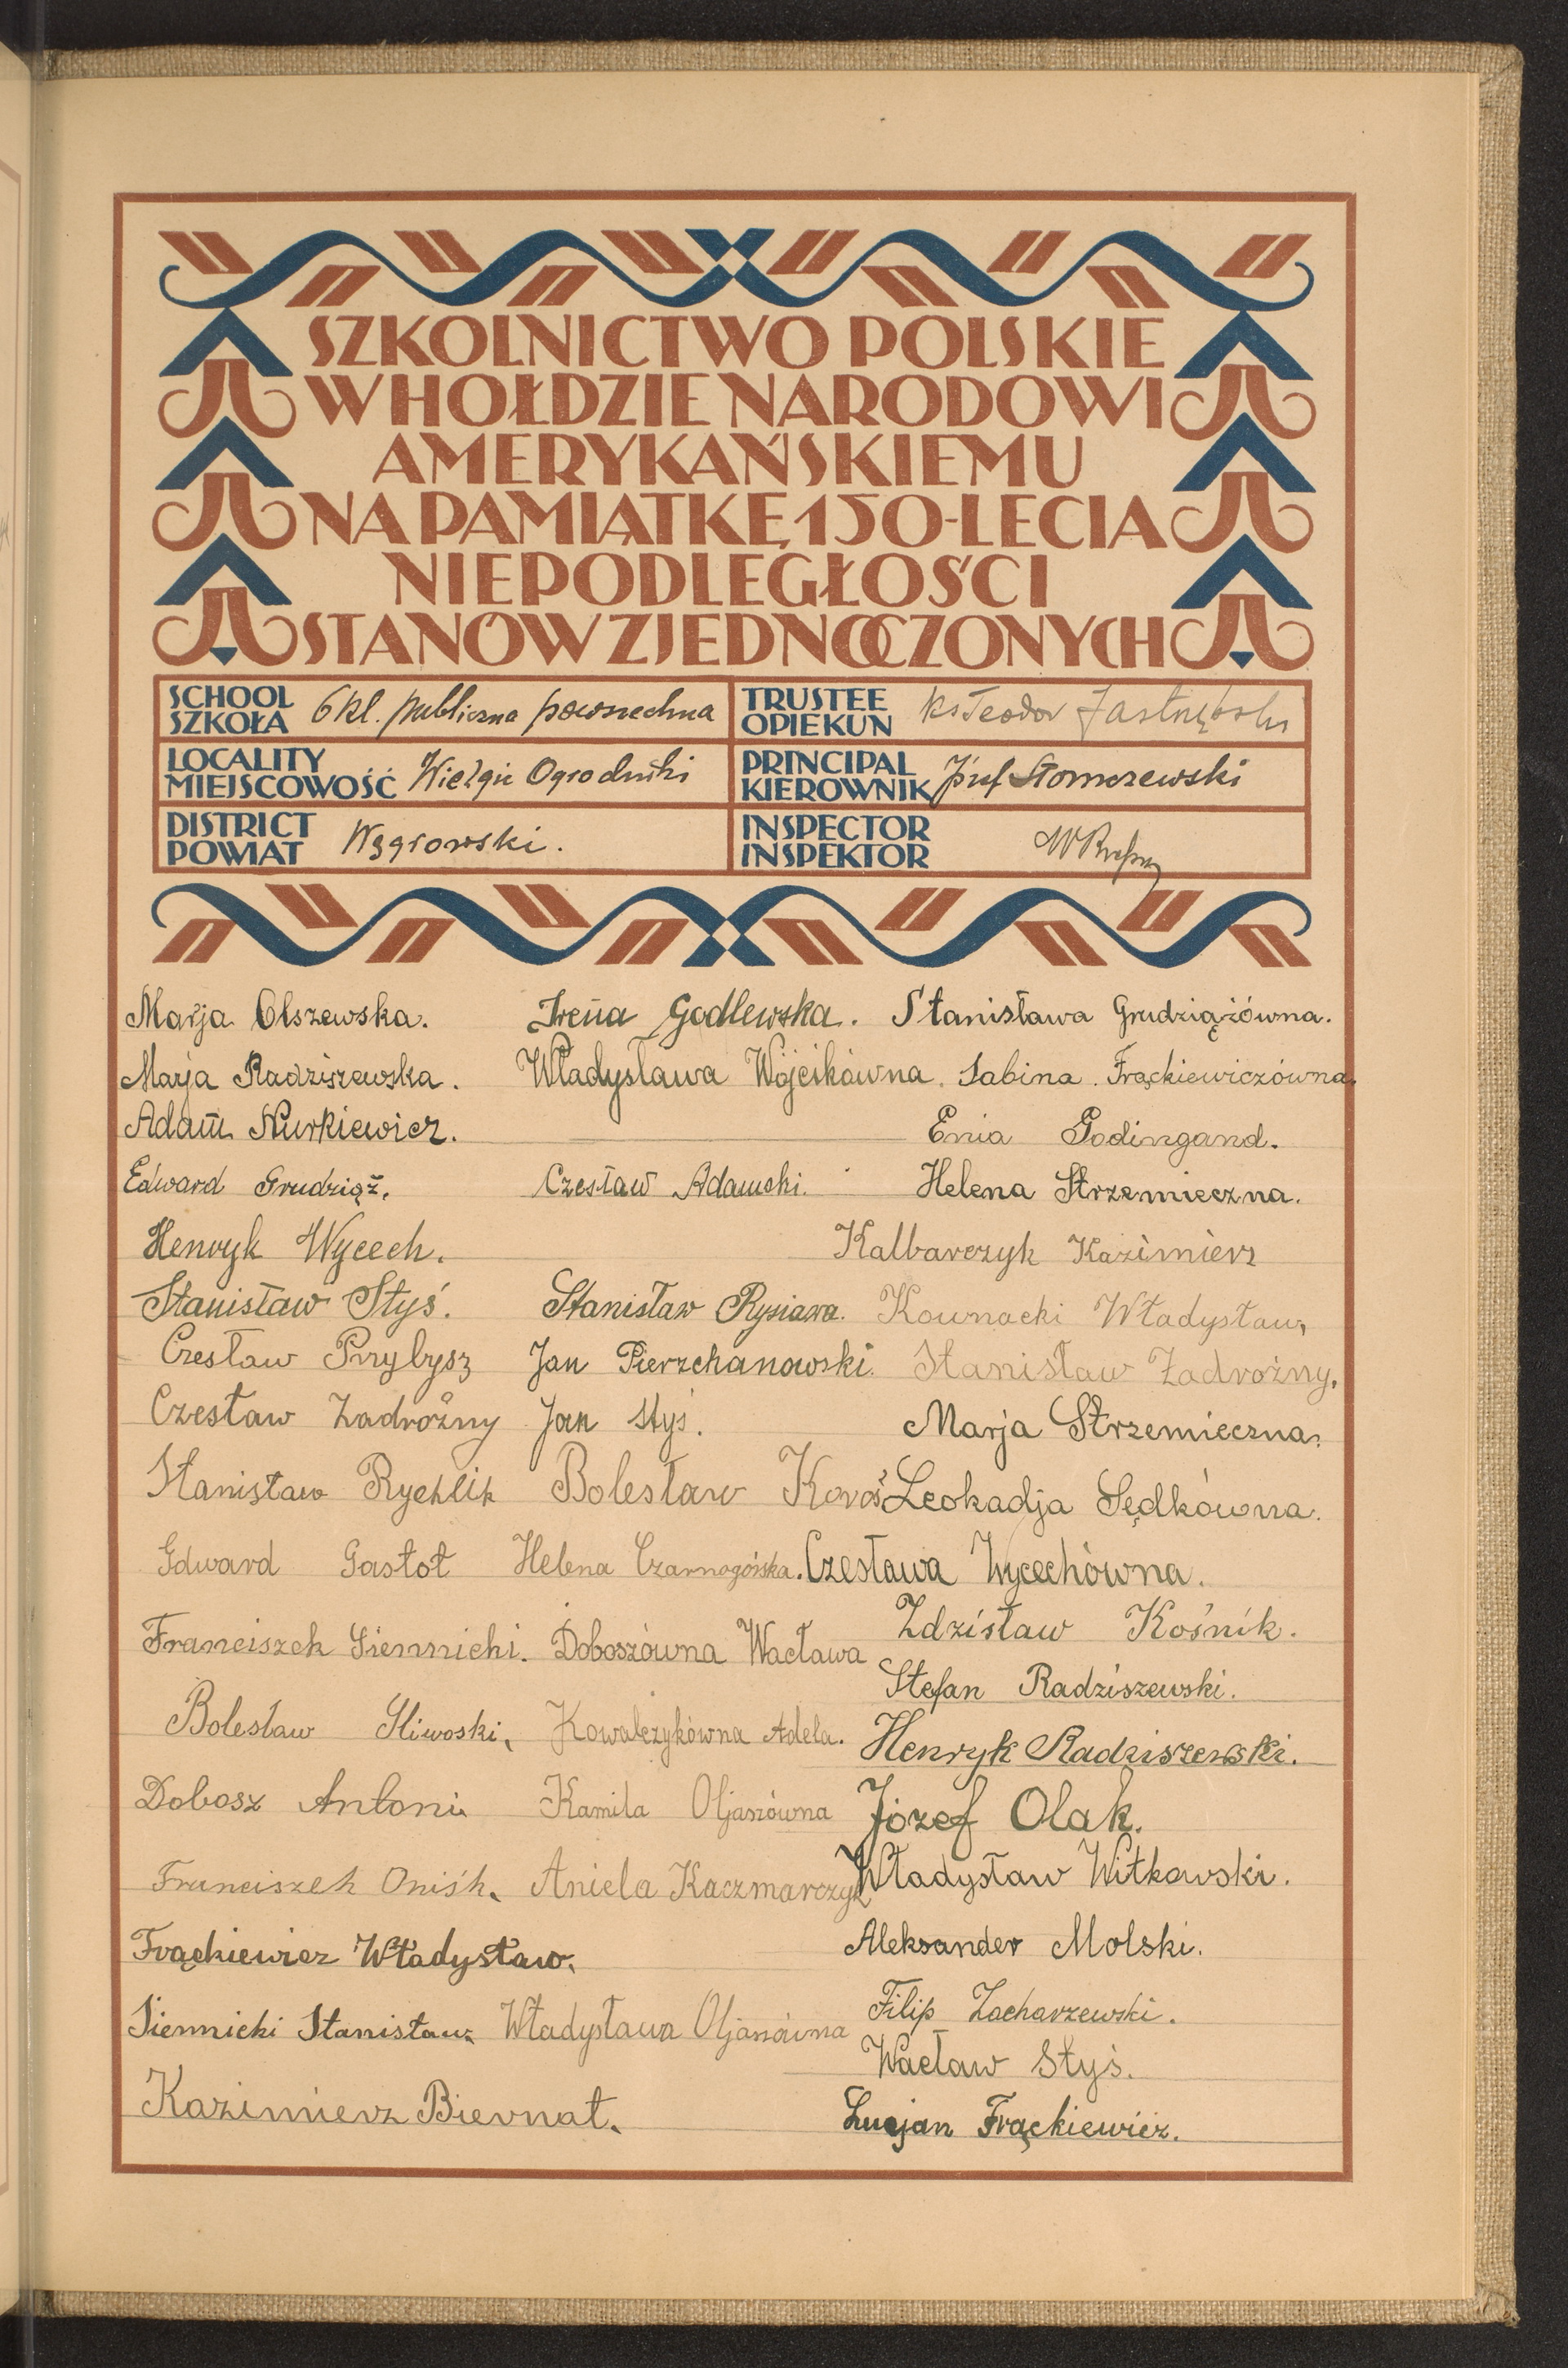 SZKOLNICTWO POLSKIE
W HOŁDZIE NARODOWI
AMERYKAŃSKIEMU
NA PAMIĄTKĘ 150-LECIA
NIEPODLEGŁOŚCI
STANÓW ZJEDNOCZONYCH
SCHOOL
SZKOŁA 6 kl. publiczna powszechna
TRUSTEE
OPIEKUN ks Teodor
LOCALITY
MIEJSCOWOŚĆ
PRINCIPAL
KIEROWNIK Józef Słomczewski
DISTRICT
POWIAT Węgrowski.
INSPECTOR
INSPEKTOR
Marja Olszewska.
Irena Godlewska.
Stanisława Grudziążówna.
Marja Radziszewska.
Władysława Wójcikówna.
Sabina Frąckiewiczówna.
Adam Nurkiewicz.
Enia Godingand.
Edward Grudziąż.
Czesław Adamski.
Helena Strzemieczna.
Henryk Wycech.
Kalbarczyk Kazimierz
Stanisław Styś.
Stanisław Rysiawa.
Kownacki Władysław,
Czesław Przybysz
Jan Pierzchanowski.
Stanisław Zadrożny.
Czesław Zadrożny
Jan Styś.
Marja Strzemieczna.
Stanisław Rychlik
Bolesław Koroś
Leokadja Sędkówna.
Edward Gastoł
Helena Czarnogórska.
Czesława Wycechówna.
Franciszek Siennicki.
Doboszówna Wacława
Zdzisław Kośnik.
Stefan Radziszewski.
Bolesław Śliwoski,
Kowalczykówna Adela.
Henryk Radziszewski.
Dobosz Antoni
Kamila Oljaszówna
Józef Olak.
Franciszek Oniśk.
Aniela Kaczmarczyk
Władysław Witkowski.
Frąckiewicz Władysław.
Aleksander Molski.
Siennicki Stanisław.
Władysława Oljaszówna
Filip Zacharzewski.
Wacław Styś.
Kazimierz Biernat.
Lucjan Frąckiewicz.